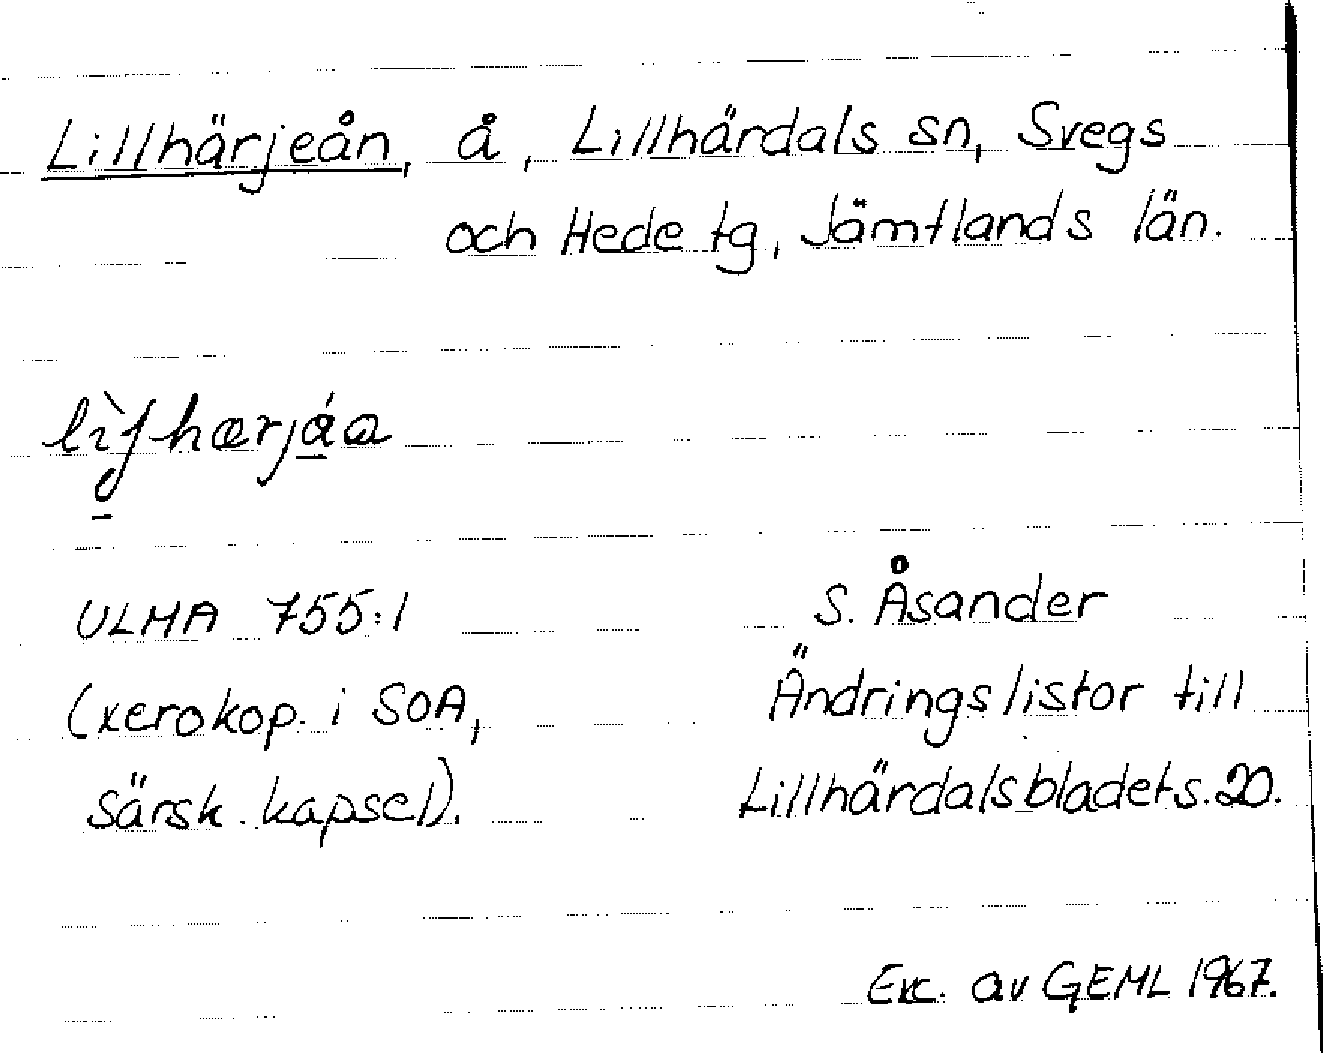 Lillhärjeån, å, Lillhärdals sn, Svegs
och Hede tg, Jämtlands län.
ULMA 755:1
(xerokop. i SOA,
särsk. kapsel).
S. Åsander
Ändringslistor till
Lillhärdalsbladet s. 20.
Exc. av GEML 1967.